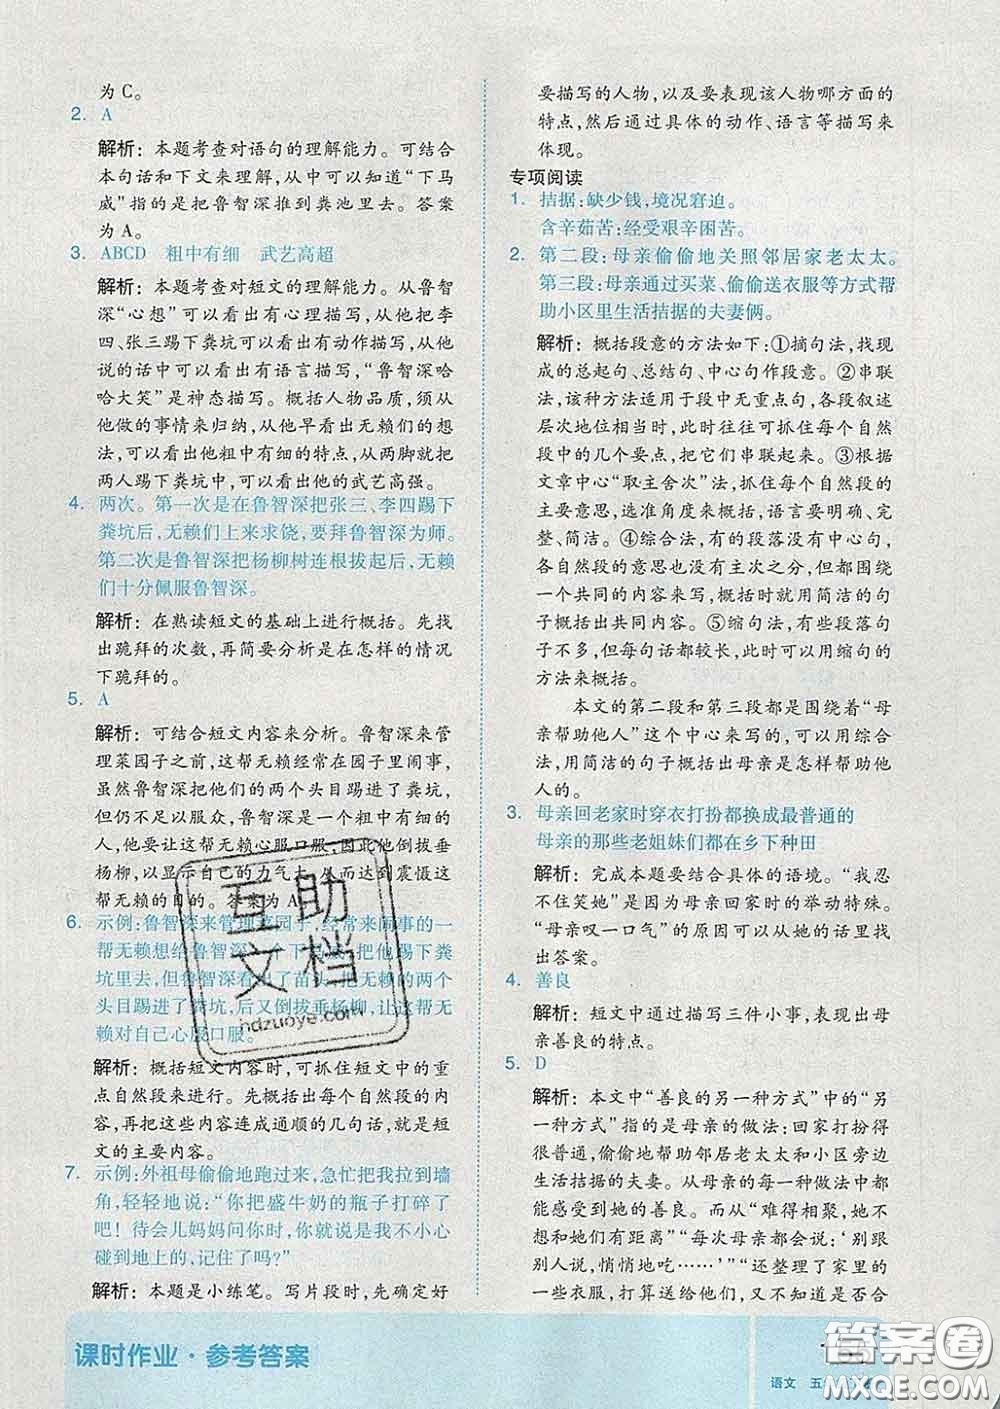 为 C。
2. A
解析：本题考查对语句的理解能力。可结合
本句话和下文来理解，从中可以知道“下马
威”指的是把鲁智深推到粪池里去。答案
为 A。
3. ABCD　粗中有细　武艺高超
解析：本题考查对短文的理解能力。从鲁智
深“心想”可以看出有心理描写，从他把李
四、张三踢下粪坑可以看出有动作描写，从
他说的话中可以看出有语言描写，“鲁智深哈
哈大笑”是神态描写。概括人物品质，须从
他做的事情来归纳，从他早看出无赖们的想
法，可以看出他粗中有细的特点，从两脚就把
两人踢下粪坑中，可以看出他的武艺高强。
4. 两次。第一次是在鲁智深把张三、李四踢下
粪坑后，无赖们上来求饶，要拜鲁智深为师。
第二次是鲁智深把杨柳树连根拔起后，无赖
们十分佩服鲁智深。
解析：在熟读短文的基础上进行概括。先找
出跪拜的次数，再简要分析是在怎样的情况
下跪拜的。
5. A
解析：可结合短文内容来分析。鲁智深来管
理菜园子之前，这帮无赖经常在园子里闹事，
虽然鲁智深把他们的两个头目踢进了粪坑，
但仍不足以服众，鲁智深是一个粗中有细的
人，他要让这帮无赖心服口服，因此他倒拔垂
杨柳，以显示自己的力气大，从而达到震慑这
帮无赖的目的。答案为 A。
6. 示例：鲁智深来管理菜园子，经常来闹事的一
帮无赖想给鲁智深一个下马威，
坑里去，但鲁智深看出了苗头，把无赖的两个
头目踢进了粪坑，后又倒拔垂杨柳，让这帮无
赖们对自己心服口服。
解析：概括短文内容时，可抓住短文中的重
点自然段来进行。先概括每个自然段的内容，
再把这些内容连成通顺的几句话，就是短
文的主要内容。
7. 示例：外祖母偷偷地跑过来，急忙把我拉到墙
角，轻轻地说：“你把盛牛奶的瓶子打碎了
吧！待会儿妈妈问你时，你就说是我不小心
碰到地上的，记住了吗？”
解析：本题是小练笔。写片段时，先确定好
要描写的人物，以及要表现该人物哪方面的
特点，然后通过具体的动作、语言等描写来
体现。
专项阅读
1. 拮据：缺少钱，境况窘迫。
含辛茹苦：经受艰辛困苦。
2. 第二段：母亲偷偷地关照邻居家老太太。
第三段：母亲通过买菜、偷偷送衣服等方式帮
助小区里生活拮据的夫妻俩。
解析：概括段意的方法如下：①摘句法，找现
成的总起句、总结句、中心句作段意。②串联
法，该种方法适用于段中无重点句，各段叙述
层次地位相当，此时往往可抓住每个自然
段中的几个要点，把它们串联起来。③根据
文章中心“取主舍次”法，抓住材料中的主要
意思，选准角度来概括，语言要准确、完
整、简洁。④综合法，有的段落没有中心句，
各自然段的意思也没有主次之分，但围绕
一个共同的内容来写，概括时就用简洁的句
子概括出共同内容。⑤缩句法，有些段落句
子不多，但每句话都较长，此时可以用缩句的
方法来概括。
本文的第二段和第三段都是围绕着“母
亲帮助他人”这个中心来写的，可以用综合
法，用简洁的句子概括出母亲是怎样帮助他
人的。
3. 母亲回老家时穿衣打扮都换成最普通的
母亲的那些老姐妹们都在乡下种田
解析：完成本题要结合具体的语境。“我忍
不住笑她”是因为母亲回家时的举动特殊。
“母亲叹一口气”的原因可以从她的话里找
出答案。
4. 善良
解析：短文中通过描写三件小事，表现出母
亲善良的特点。
5. D
解析：本文中“善良的另一种方式”中的“另
一种方式”指的是母亲的做法：回家打扮得
很普通，偷偷地帮助邻居老太太和小区旁边
生活拮据的夫妻。从母亲的每一种做法中都
能感受到她的善良。而从“难得相聚，莫不
想和她们有距离”“每次母亲都会说：‘别跟
别人说，悄悄地吃……’”“还整理了家里的
一些衣服，打算送给他们，又不知道是否合
课时作业·参考答案
语文　五
互助
文档
hdzuoye.com
答案圈
MXQE.COM